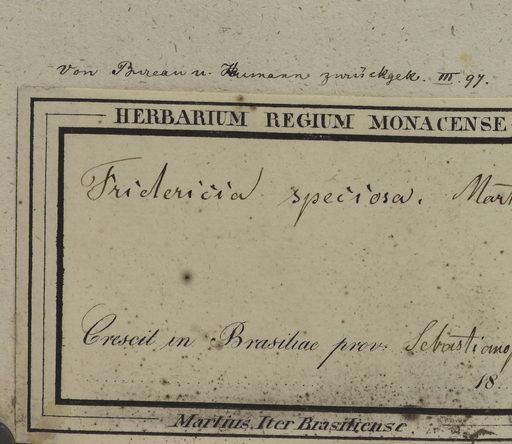 Von Bureau u. Humann zurückgek. III. 97.
HERBARIUM REGIUM MONACENSE.
Fridericia speciosa. Mart
Crescit in Brasiliae prov. Sebastianop
18
Martius Iter Brasiliense